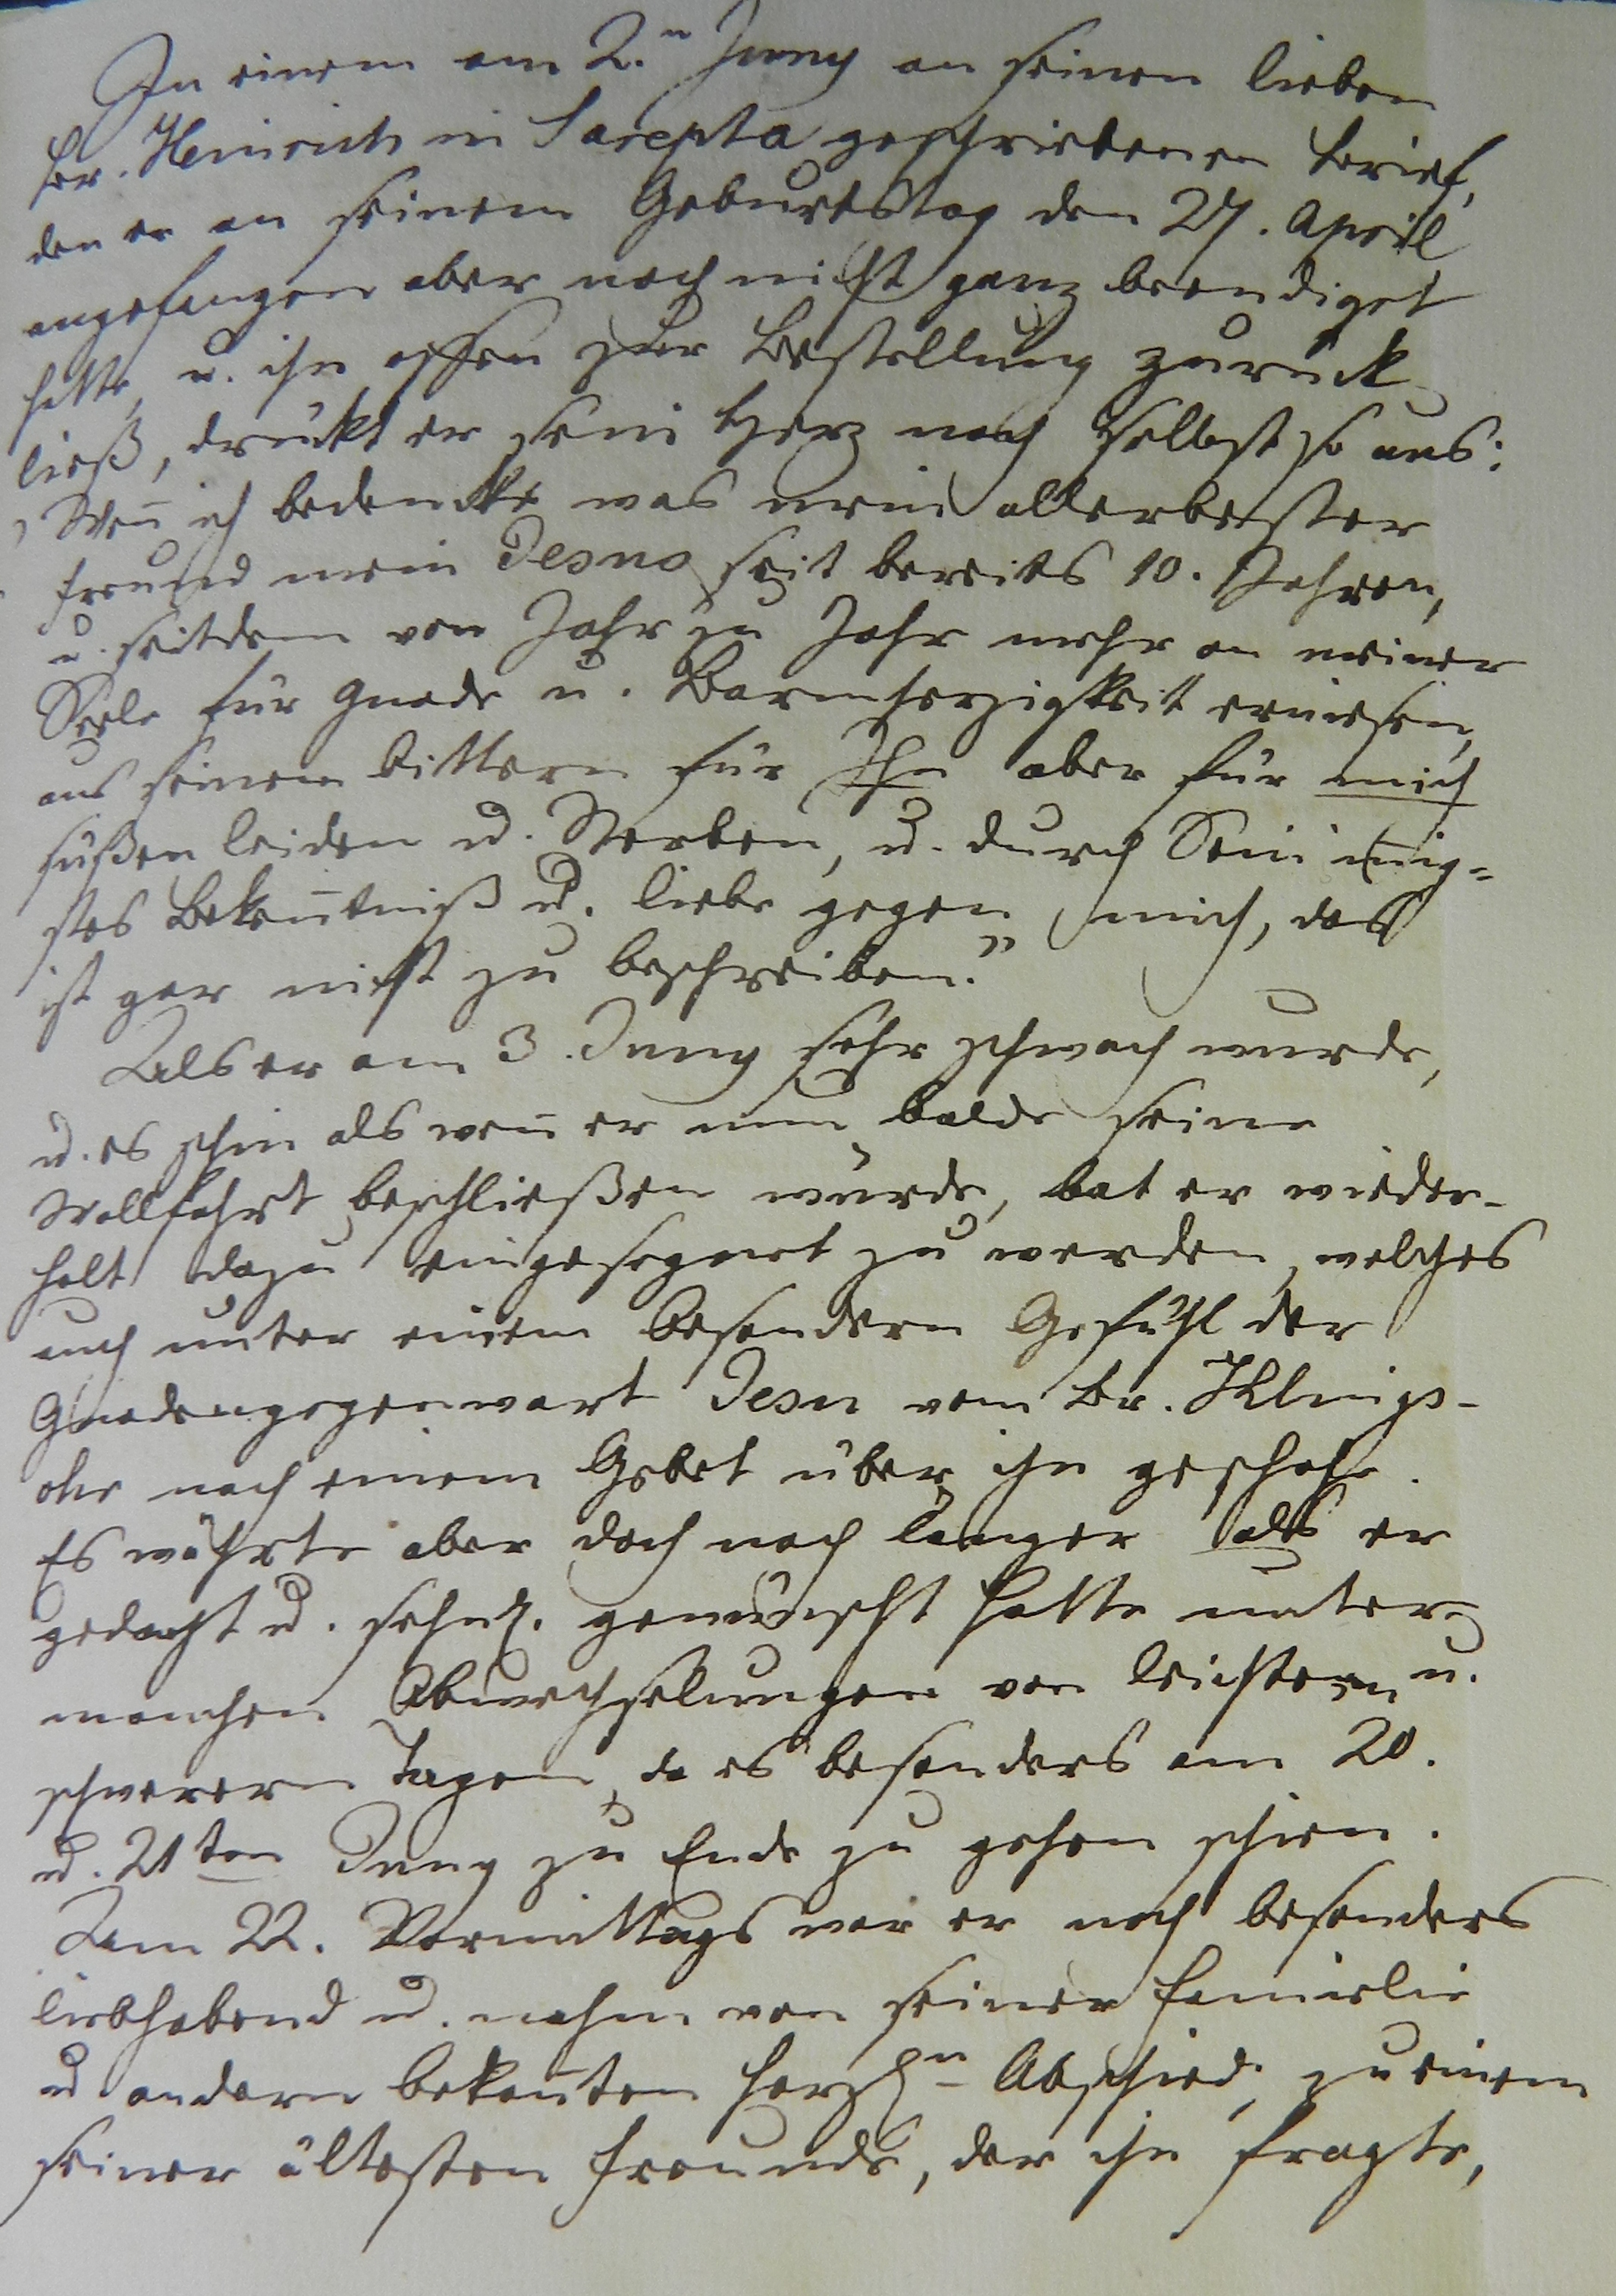 In einem am 2.n Juny an seinen lieben
Br. Heinrich in Sarepta geschriebenen Brief,
den er an seinem Geburtstag den 27. April
angefangen aber noch nicht ganz beendiget
hatte, u. ihn offen zur Bestellung zurück
ließ, drückt er sein Herz noch selbst so aus:
„Weñ ich bedencke was mein allerbester
Freund mein Jesus seit bereits 10. Jahren,
u. seitdem von Jahr zu Jahr mehr an meiner
Seele für Gnade u. Barmherzigkeit erwiesen,
aus seinem bittern für Ihn aber für mich
süßen Leiden u. Sterben, u. durch Sein iñig=
stes Bekeñtniß u. Liebe gegen mich, das
ist gar nicht zu beschreiben."
Als er am 3. Juny sehr schwach wurde,
u. es schin als weñ er nun balde seine
Wallfahrt beschließen würde, bat er wieder-
holt dazu eingesegnet zu werden, welches
auch unter einem besondern Gefühl der
Gnadengegenwart Jesu vom Br. Klings-
ohr nach einem Gebet über ihn geschahe.
Es währte aber doch noch länger als er
gedacht u. sehnl. gewünscht hatte unter
manchen Abwechselungen von leichtern u.
schwerern Tagen, da es besonders am 20.
u. 21ten Juny zu Ende zu gehen schien.
Am 22. Vormittags war er noch besonders
liebhabend u. nahm von seiner Famielie
u andern bekañten herzln Abschied, zu einem
seiner ältesten Freunde, der ihn fragte,